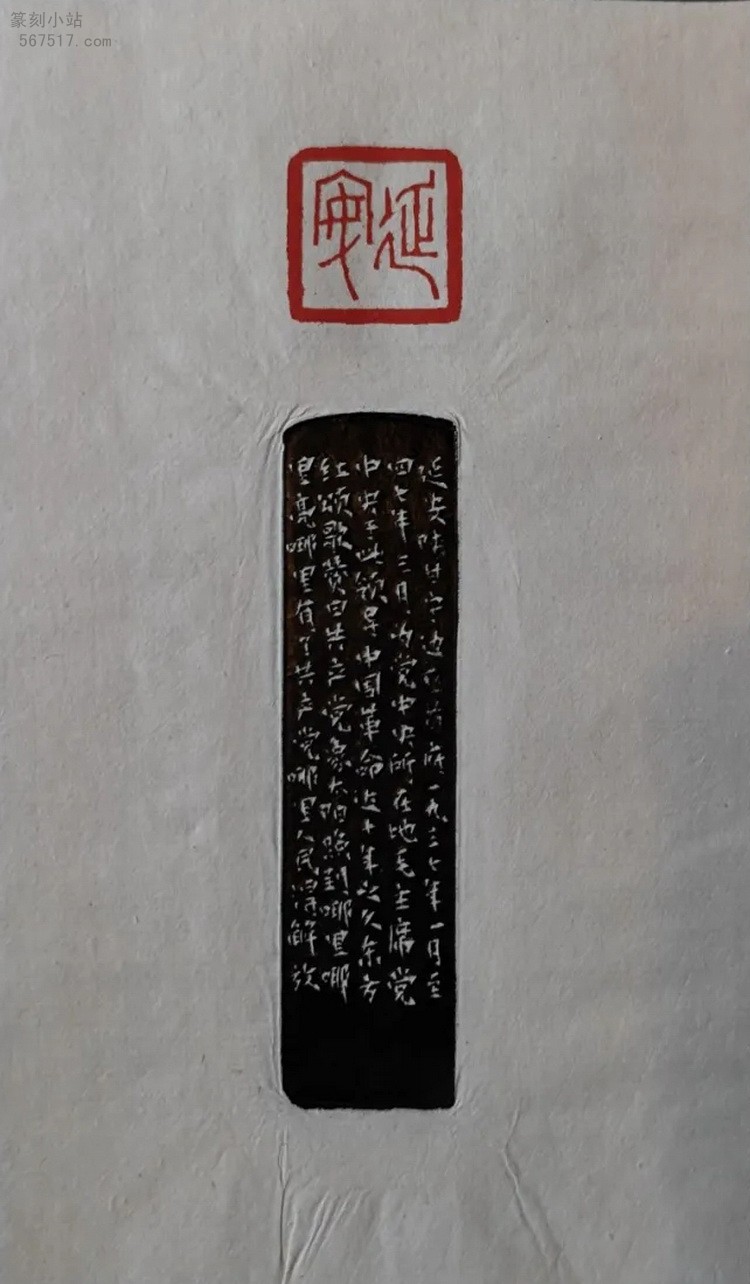 篆刻小站
567517.com
延安
延安陕甘宁边区首府一九三七年一月至
四七年三月为党中央所在地毛主席党
中央于此领导中国革命近十年之久东方
红颂歌赞曰共产党象太阳照到哪里哪
里亮哪里有了共产党哪里人民得解放